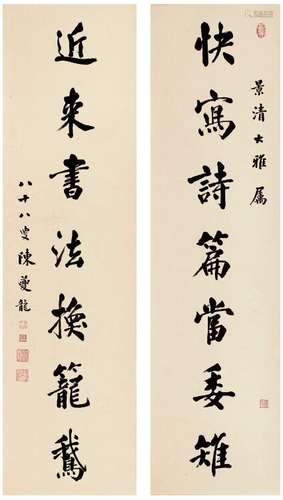 景清大雅屬
快寫詩篇當委雉
近來書法換籠鵝
八十八叟陳夔龍